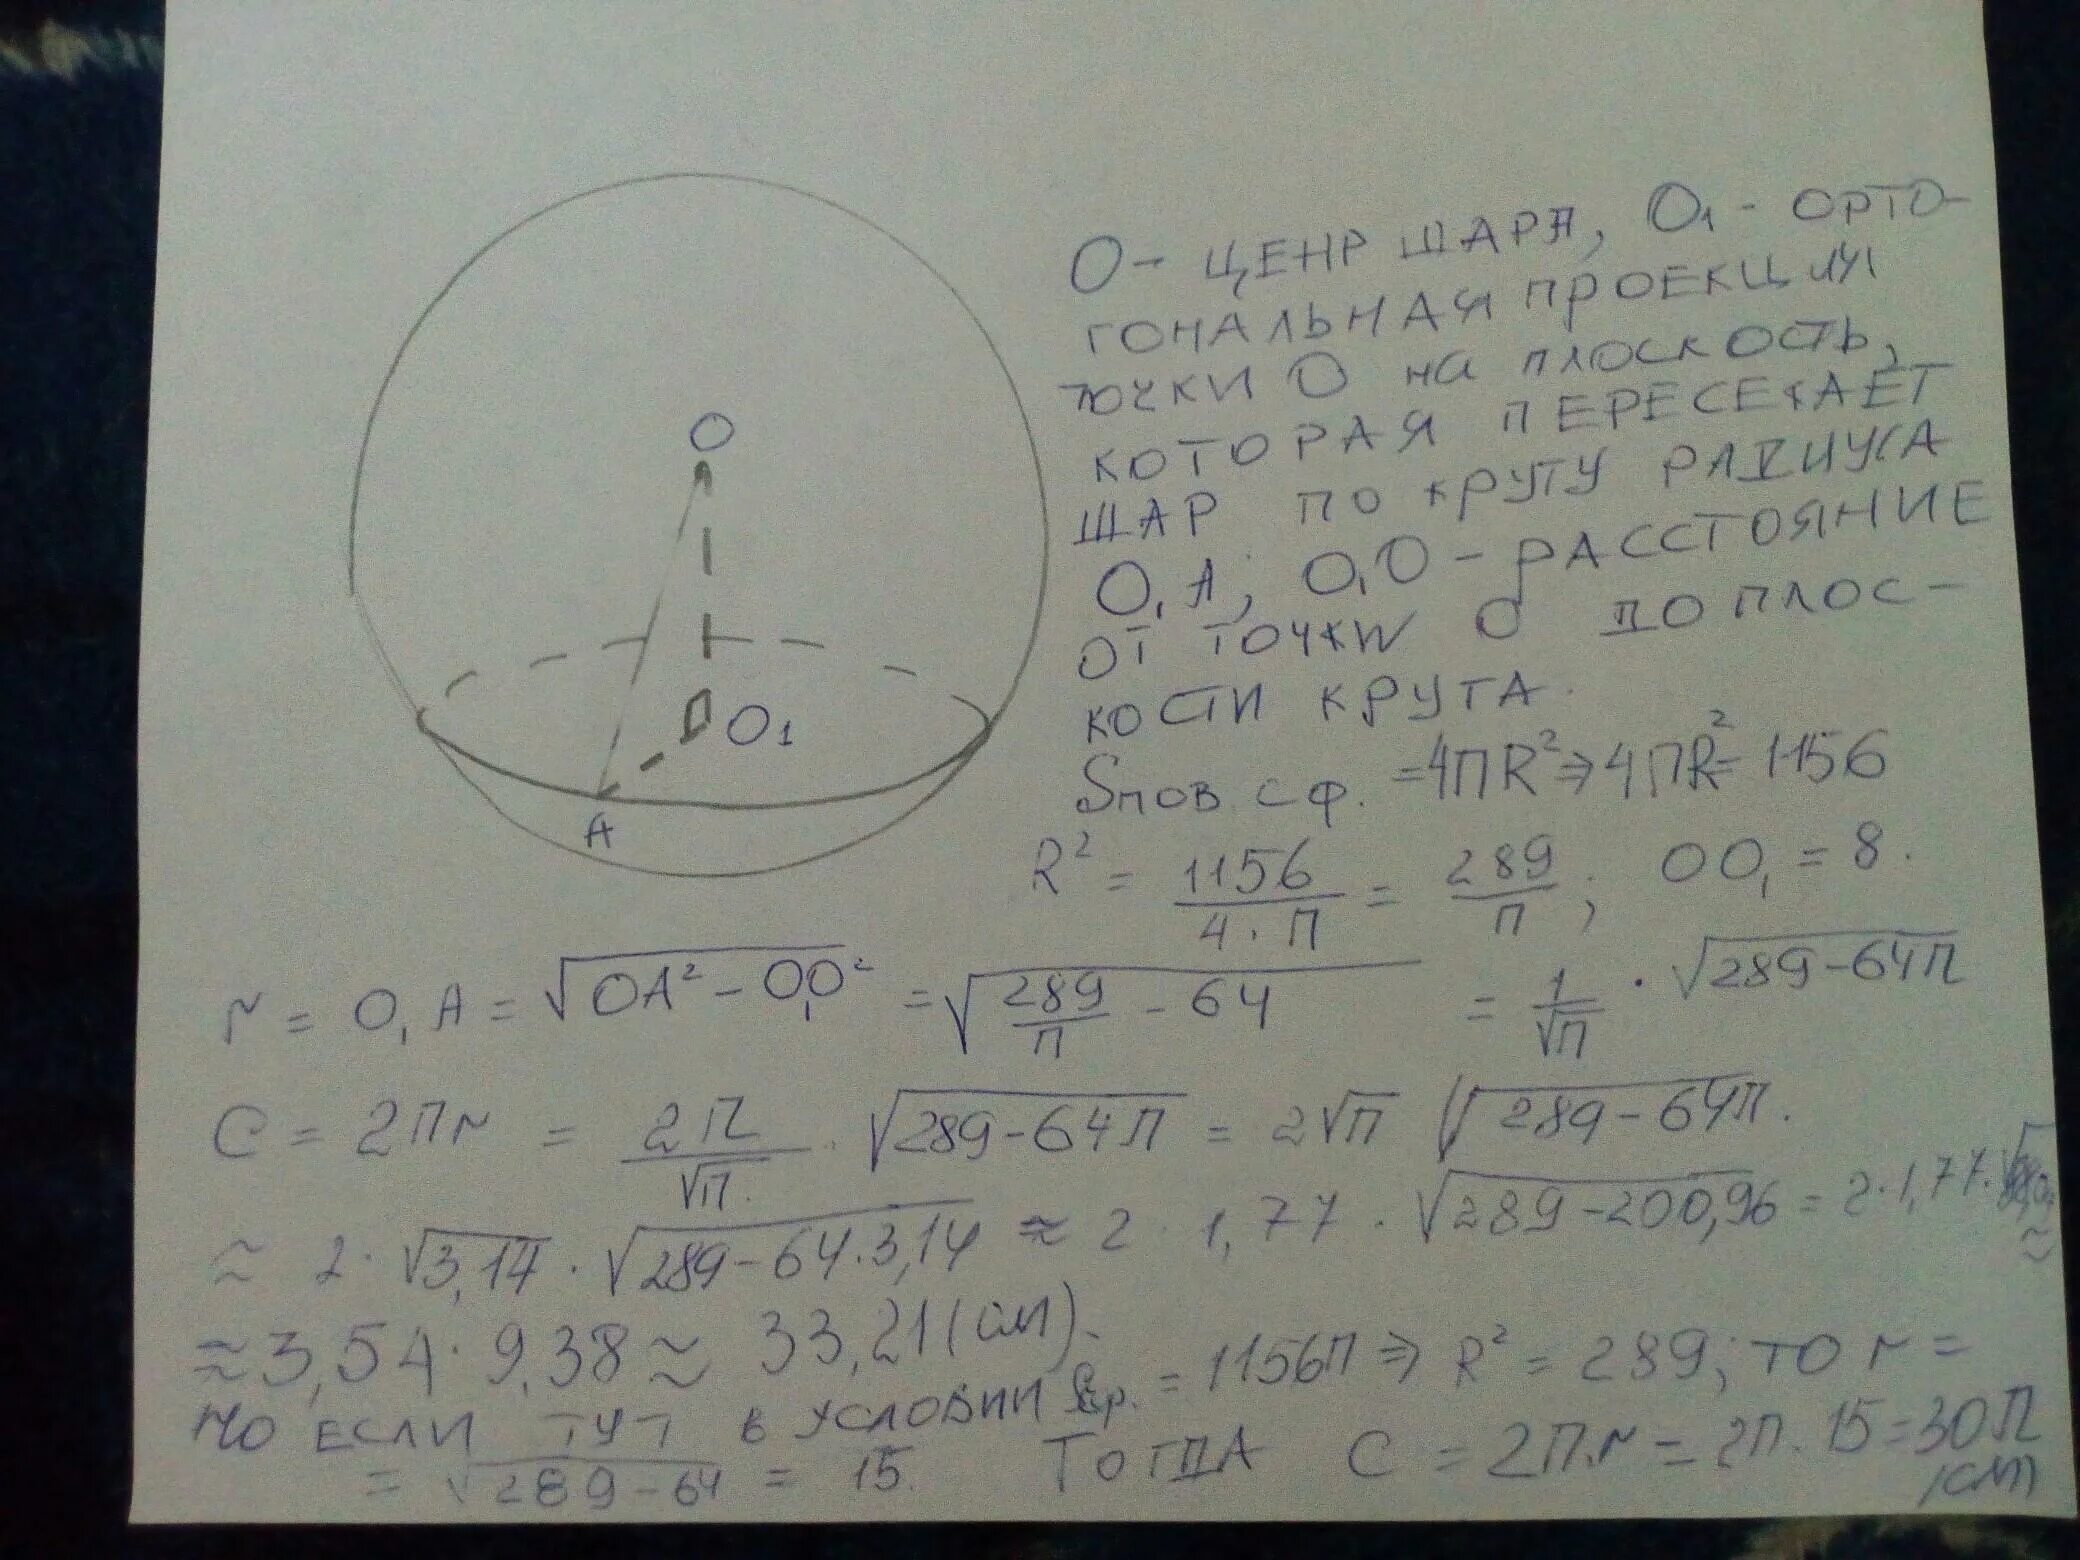 O
O1
A
O - ЦЕНР ШАРА, O1 - ОРТО-
ГОНАЛЬНАЯ ПРОЕКЦИЯ
ТОЧКИ O НА ПЛОСКОСТЬ,
КОТОРАЯ ПЕРЕСЕКАЕТ
ШАР ПО КРУГУ РАДИУСА
O₁A, O₁O - РАССТОЯНИЕ
ОТ ТОЧКИ O ДО ПЛОС-
КОСТИ КРУГА.
Sпов. сф. = 4ПR² ⇒ 4ПR² = 1156
R² = 1156/(4·П) = 289/П; OO₁ = 8.
r = O₁A = √(OA² - O₁O²) = √(289/П - 64) = 1/√П · √(289-64П)
C = 2Пr = 2П/√П · √(289-64П) = 2√П √(289-64П).
≈ 2·√3,14 · √(289-64·3,14) ≈ 2 · 1,77 · √(289-200,96) = 2·1,77·
≈
≈ 3,54 · 9,38 ≈ 33,21 (см).
НО ЕСЛИ ТУТ В УСЛОВИИ Sср. = 1156П ⇒ R² = 289; ТО r =
= √(289-64) = 15. ТОГДА C = 2П·r = 2П·15 = 30П
(см)